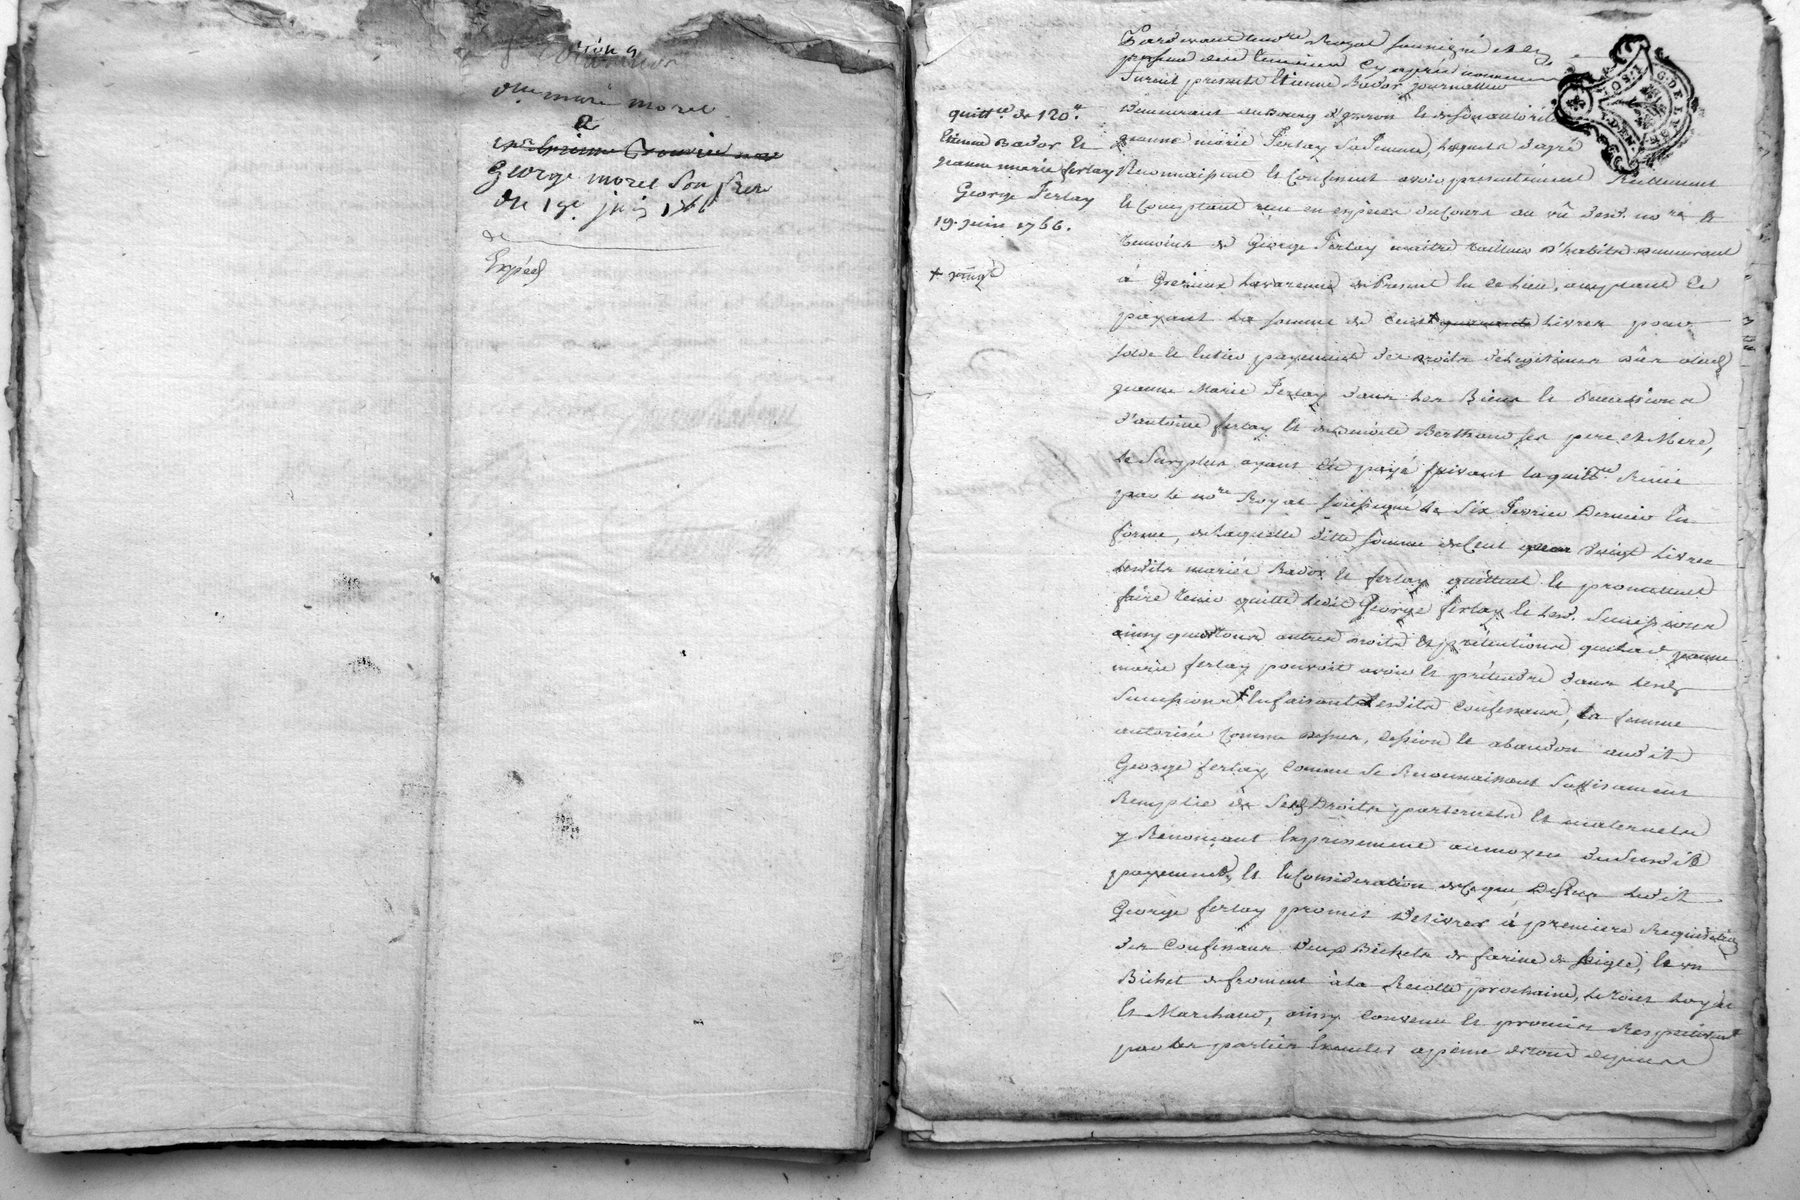 marie morel
a
George morel Son frere
du 19e juin 1766
Expédé
quittce de 120tt
Etienne Bador et
jeanne marie ferlay
George Ferlay
19. juin 1766.
+ vingt
Pardevant le nore Royal soussigné et en
presence des temoins cy aprés nommés
furent presents Etienne Bador journallier
demeurant au Bourg et de son autorité
jeanne marie Ferlay sa femme, laquelle d'agré
Reconnaissent et Confessent avoir presentement Réellement
et Comptant reçu en espèces du Cours au vû desd. nore &
temoins de George Ferlay maitre tailleur d'habits demeurant
à Grezieux Lavarenne de Present en ce lieu, acceptant et
payant la somme de Cent + quarante Livres pour
solde et entier payement des droits de Legitimes dûs a lad.
jeanne Marie Ferlay dans les Biens et successions
d'antoine ferlay et Benoite Berthoud ses pere et Mere,
le Surplus ayant été payé suivant la quittce Reçue
par le nore Royal soussigné le Six Fevrier Dernier en
forme, de laquelle ditte somme de Cent vingt Livres
lesdits mariés Bador et ferlay quittent et promettent
faire tenir quitte ledit George ferlay et lesd. successions
ainsy que tous autres droits et prétentions que lad. jeanne
marie ferlay pouvoit avoir et prétendre dans lesd.
successions + en faisants Lesdits Confessants, la femme
autorisée Comme dessus, Cession et abandon audit
George ferlay, Comme se Reconnaissant suffisament
Remplie de Sesd. Droits paternels et maternels
y Renonçant Expressement au moyen du susdit
payement, et En Consideration de Ce que Dessus ledit
George ferlay promet Délivrer à premiere Requisition
des Confessants deux Bichets de farine de seigle, et un
Bichet de froment à la Recolte prochaine, le tout Loyal
et Marchand, ainsy Convenu et promis Respectivement
par les parties Executer a peine de tous depens